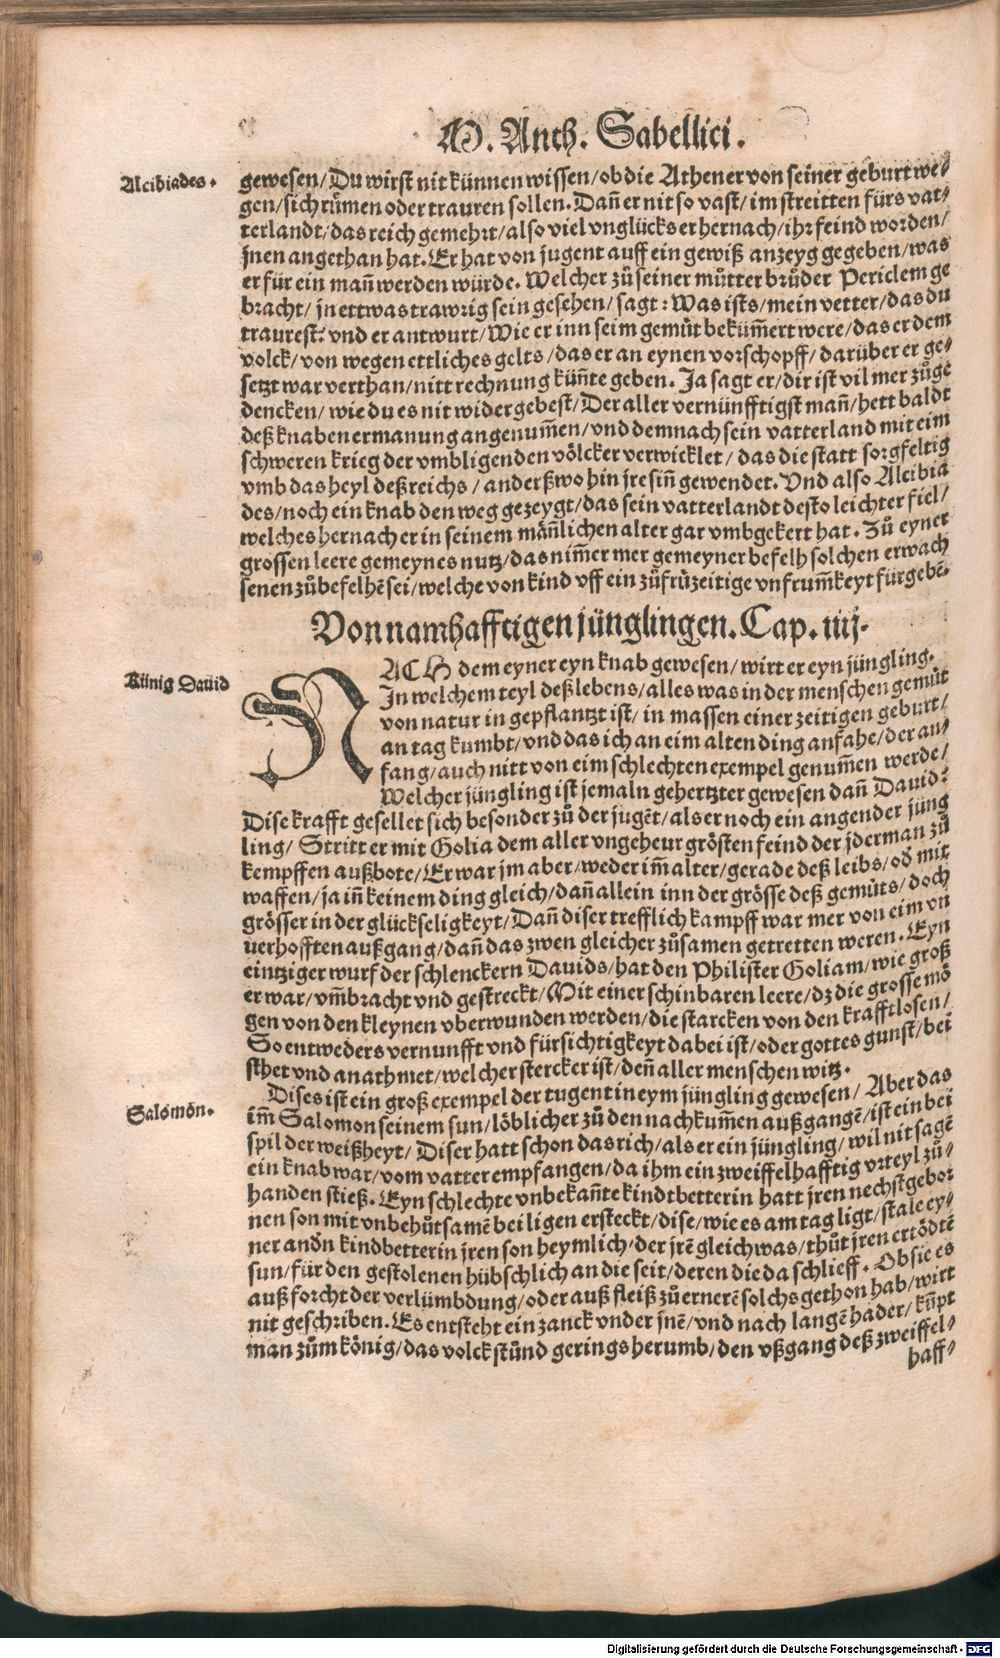 M. Anth. Sabellici.
Alcibiades.
gewesen/ Du wirst nit künnen wissen/ ob die Athener von seiner geburt we⸗
gen/ sich rümen oder trauren sollen. Dañ er nit so vast/ im streitten fürs vat⸗
terlandt/ das reich gemehrt/ also viel vnglücks er hernach/ ihr feind worden/
jnen angethan hat. Er hat von jugent auff ein gewiß anzeyg gegeben/ was
er für ein mañ werden würde. Welcher zů seiner můtter brůder Periclem ge
bracht/ jn ettwas trawrig sein gesehen/ sagt: Was ists/ mein vetter/ das du
traurest? vnd er antwurt/ Wie er inn seim gemůt bekům̃ert were/ das er dem
volck/ von wegen ettliches gelts/ das er an eynen vorschopff/ darüber er ge⸗
setzt war verthan/ nitt rechnung küñte geben. Ja sagt er/ dir ist vil mer zůge
dencken/ wie du es nit widergebest/ Der aller vernünfftigst mañ/ hett baldt
deß knaben ermanung angenum̃en/ vnd demnach sein vatterland mit eim
schweren krieg der vmbligenden völcker verwicklet/ das die statt sorgfeltig
vmb das heyl deß reichs/ anderßwo hin jre siñ gewendet. Vnd also Alcibia
des/ noch ein knab den weg gezeygt/ das sein vatterlandt desto leichter fiel/
welches hernach er in seinem mäñlichen alter gar vmbgekert hat. Zů eyner
grossen leere gemeynes nutz/ das nim̃er mer gemeyner befelh solchen erwach
senen zůbefelhẽ sei/ welche von kind vff ein zůfrüzeitige vnfrum̃keyt fürgebẽ.
Von namhafftigen jünglingen. Cap. iiij.
Künig Dauid
NACH dem eyner eyn knab gewesen/ wirt er eyn jüngling.
In welchem teyl deß lebens/ alles was in der menschen gemüt
von natur in gepflantzt ist/ in massen einer zeitigen geburt/
an tag kumbt/ vnd das ich an eim alten ding anfahe/ der an⸗
fang/ auch nitt von eim schlechten exempel genum̃en werde/
Welcher jüngling ist jemaln gehertzter gewesen dañ Dauid?
Dise krafft gesellet sich besonder zů der jugẽt/ als er noch ein angender jüng
ling/ Stritt er mit Golia dem aller vngeheur grösten feind der jderman zů
kempffen außbote/ Er war jm aber/ weder im̃ alter/ gerade deß leibs/ oď mit
waffen/ ja iñ keinem ding gleich/ dañ allein inn der grösse deß gemüts/ doch
grösser in der glückseligkeyt/ Dañ diser trefflich kampff war mer von eim vn
uerhofften außgang/ dañ das zwen gleicher zůsamen getretten weren. Eyn
eintziger wurf der schlenckern Dauids/ hat den Philister Goliam/ wie groß
er war/ vm̃bracht vnd gestreckt/ Mit einer schinbaren leere/ dz die grosse mö
gen von den kleynen vberwunden werden/ die starcken von den krafftlosen/
So entweders vernunfft vnd fürsichtigkeyt dabei ist/ oder gottes gunst/ bei
sthet vnd anathmet/ welcher stercker ist/ deñ aller menschen witz.
Salomon.
Dises ist ein groß exempel der tugent in eym jüngling gewesen/ Aber das
im̃ Salomon seinem sun/ löblicher zů den nachkum̃en außgangẽ/ ist ein bei
spil der weißheyt/ Diser hatt schon das rich/ als er ein jüngling/ wil nit sagẽ
ein knab war/ vom vatter empfangen/ da ihm ein zweiffelhafftig vrteyl zů⸗
handen stieß. Eyn schlechte vnbekañte kindtbetterin hatt jren nechstgebor
nen son mit vnbehůtsamẽ bei ligen ersteckt/ dise/ wie es am tag ligt/ stale ey⸗
ner anďn kindbetterin jren son heymlich/ der jrẽ gleich was/ thůt jren ertödtẽ
sun/ für den gestolenen hübschlich an die seit/ deren die da schlieff. Ob sie es
auß forcht der verlümbdung/ oder auß fleiß zů ernerẽ solchs gethon hab/ wirt
nit geschriben. Es entsteht ein zanck vnder jnẽ/ vnd nach langẽ hader/ küm̃pt
man zům könig/ das volck stůnd gerings herumb/ den vßgang deß zweiffel⸗
haff⸗
Digitalisierung gefördert durch die Deutsche Forschungsgemeinschaft - DFG